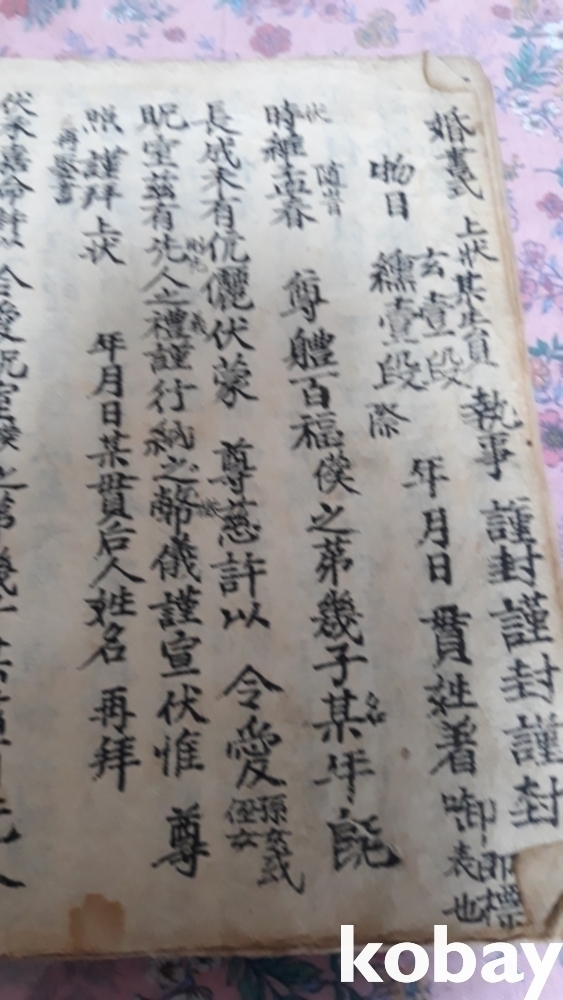 婚書式 上狀某生員 執事 謹封謹封謹封
物目 玄壹段 年月日 貫姓着啣 卽標表也
纁壹段 際
伏 時維孟春 隨旹 尊體百福僕之第幾子某名年旣
長成未有伉儷伏蒙 尊慈許以 令愛 孫女或侄女
貺室茲有先人之禮謹行納之幣儀謹宣伏惟 尊
照 謹拜 上狀 年月日某貫后人姓名 再拜
伏承嘉命許以令愛貺室僕之第幾
kobay